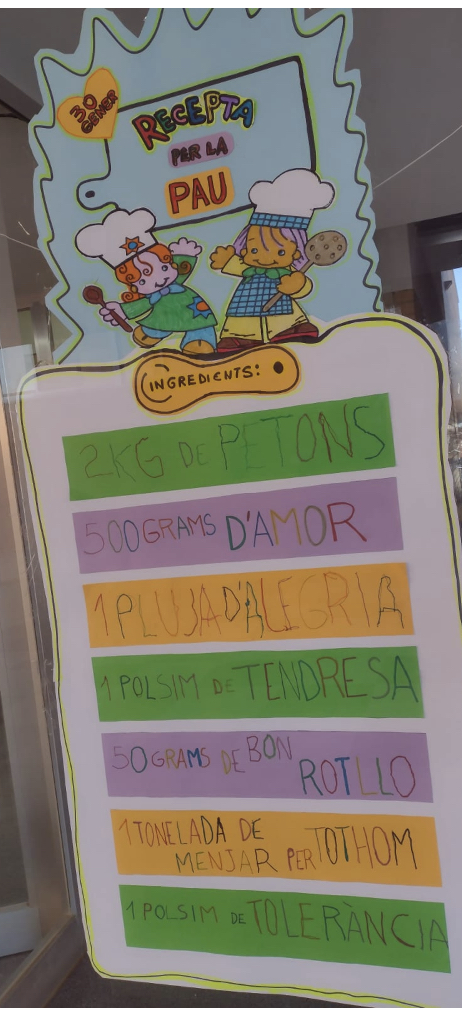 30
GENER
RECEPTA
PER LA
PAU
INGREDIENTS:
2KG DE PETONS
500GRAMS D'AMOR
1 PLUJA D'ALEGRIA
1 POLSIM DE TENDRESA
50GRAMS DE BON
ROTLLO
1 TONELADA DE
MENJAR PER TOTHOM
1 POLSIM DE TOLERÀNCIA